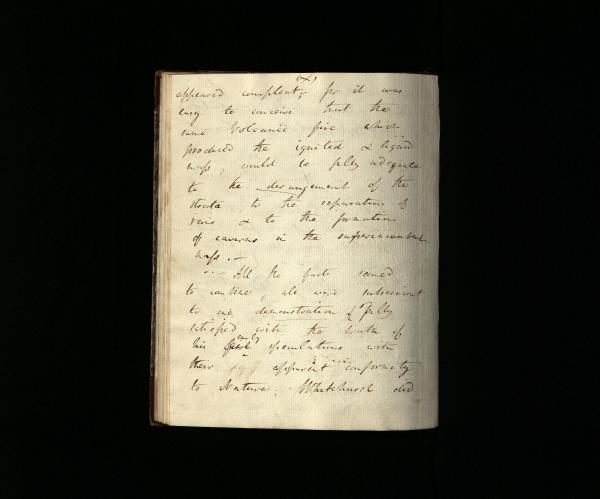 appeared compleat; for it was
easy to conceive that the
same Volcanic fire which
produced the ignited & liquid
mass, would be fully adequate
to the derangement of the
strata to the separation of
veins & to the formation
of caverns in the superincumbent
mass. —
— All the facts seemed
to combine, all were subservient
to one demonstration & fully
satisfied with the truth of
his early speculations with
their apparent conformity
to Nature. Whitehurst did